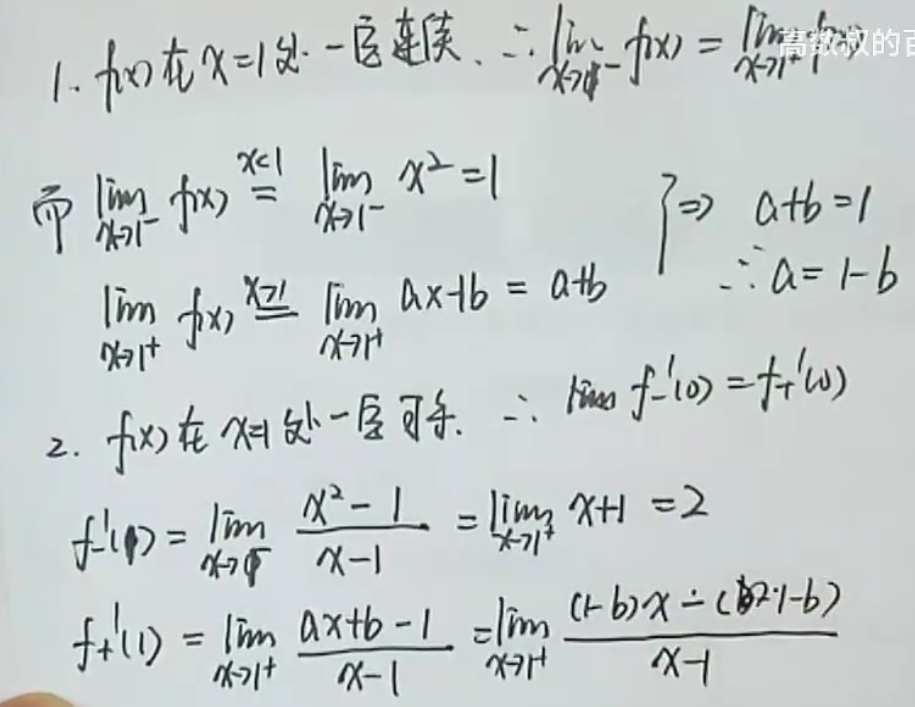 1. f(x)在x=1处一定连续. ∴ lim x→1⁻ f(x) = lim x→1⁺ 高数叔的
而 lim x→1⁻ f(x) x<1 = lim x→1⁻ x² = 1
lim x→1⁺ f(x) x>1 = lim x→1⁺ ax+b = a+b } ⇒ a+b=1
∴ a = 1-b
2. f(x)在x=1处一定可导. ∴ lim f₋'(0) = f₊'(0)
f₋'(1) = lim x→1⁻ (x²-1)/(x-1) = lim x→1⁺ x+1 = 2
f₊'(1) = lim x→1⁺ (ax+b-1)/(x-1) = lim x→1⁺ ((1-b)x - (1-b))/(x-1)